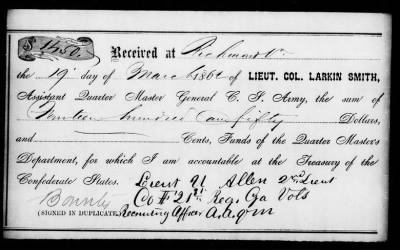 $ 1450.
Received at Richmond Va
the 19 day of March 1862 of LIEUT. COL. LARKIN SMITH,
Assistant Quarter Master General C. S. Army, the sum of
hundred and fifty Dollars,
and Cents, Funds of the Quarter Master's
Department, for which I am accountable at the Treasury of the
Confederate States. Lieut Allen 2nd Lieut
Bounty Co 21st Reg. Ga Vols
(SIGNED IN DUPLICATE) Recruiting Officer A.A.Q.M